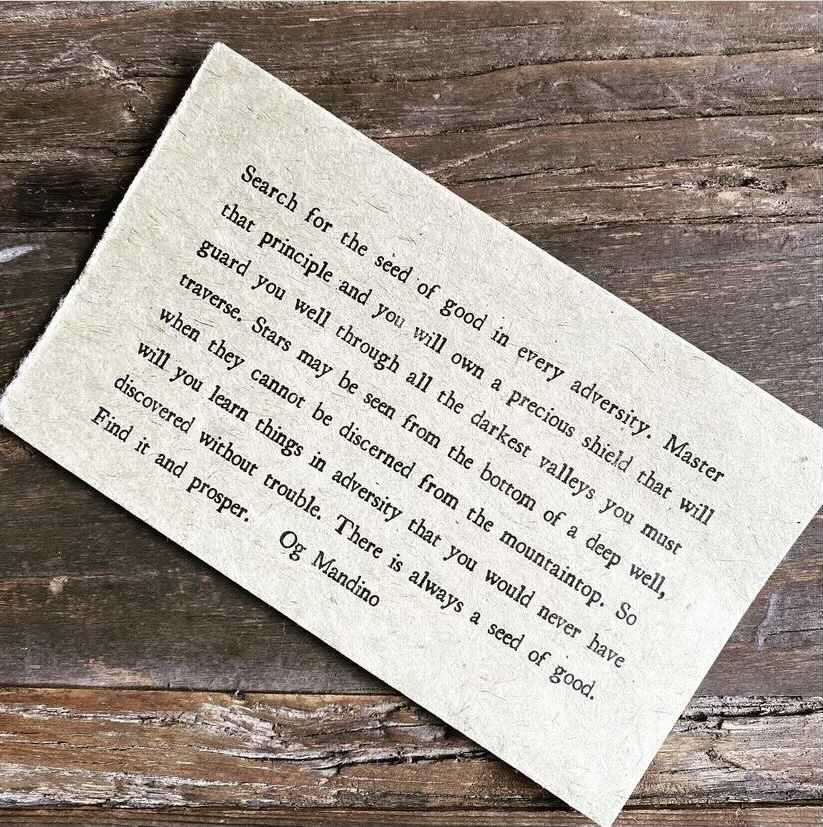 Search for the seed of good in every adversity. Master
that principle and you will own a precious shield that will
guard you well through all the darkest valleys you must
traverse. Stars may be seen from the bottom of a deep well,
when they cannot be discerned from the mountaintop. So
will you learn things in adversity that you would never have
discovered without trouble. There is always a seed of good.
Find it and prosper.
Og Mandino